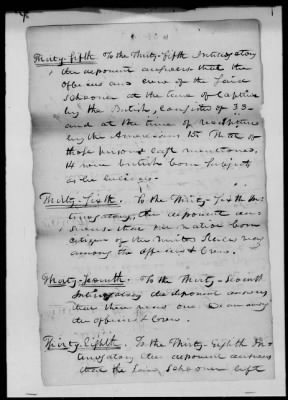 Thirty-fifth To the Thirty-fifth Interrogatory
the deponent answers that the
officers and crew of the said
Schooner at the time of Capture
by the British, consisted of 33
and at the time of recapture
by the Americans 15. That of
those persons last mentioned,
14 were british born subjects
as he believes.
Thirty-Sixth. To the Thirty Sixth In-
terrogatory, the deponent ans-
wers that no native born
citizen of the United States was
among the officers & Crew.
Thirty-Seventh To the Thirty-Seventh
Interrogatory the deponent answers
that there was one among
the officers & Crew.
Thirty-Eighth To the Thirty-Eighth In-
terrogatory the deponent answers
that the said Schooner left